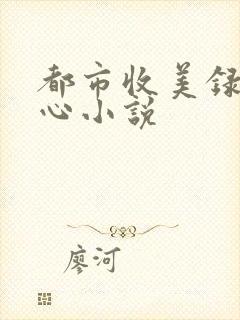 都市收美録
心小説
廖河